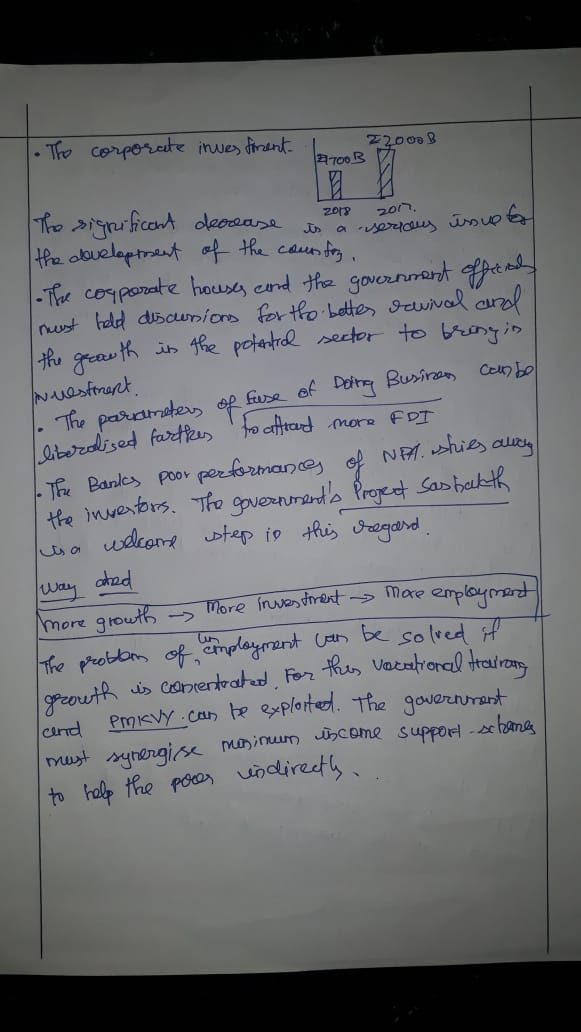 • The corporate investment.
₹2000B
₹1700B
2018 2017.
The significant decrease is a serious issue to
the development of the country.
• The corporate houses and the government officials
must held discussions for the better revival and
the growth in the potential sector to bring in
investment.
• The parameters of Ease of Doing Business can be
liberalised further to attract more FDI
• The Banks poor performances of NPA. shies away
the investors. The government's Project Sashakth
is a welcome step in this regard.
Way ahead
More growth → More investment → More employment
The problem of unemployment can be solved if
growth is concentrated. For this vocational training
and PMKVY can be exploited. The government
must synergise minimum income support schemes
to help the poor indirectly.